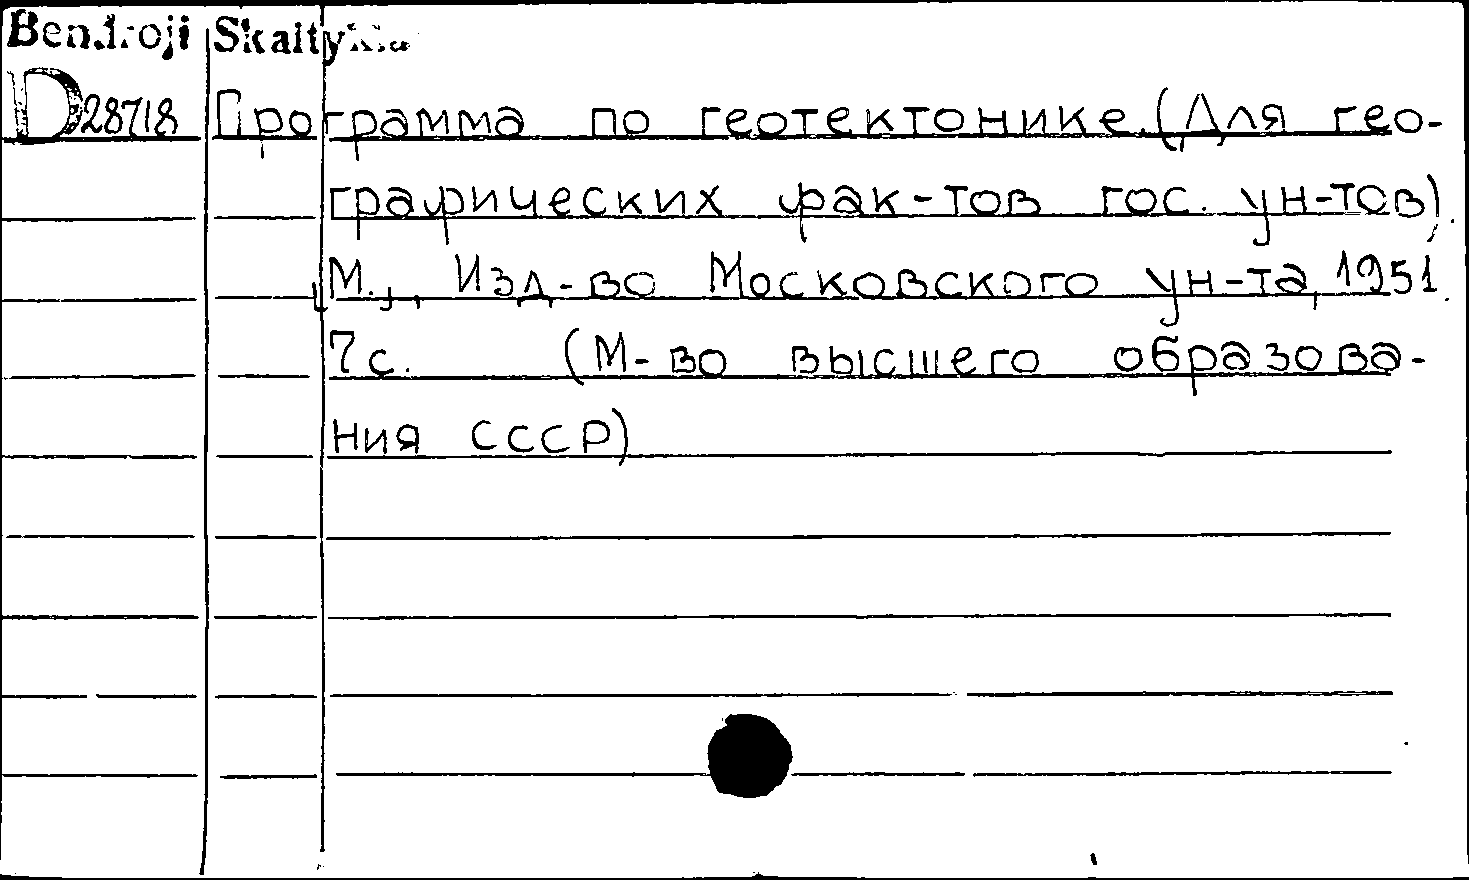 Bendroji Skaitykla
D28718 Программа по геотектонике. (Для гео-
графических фак-тов гос. ун-тов).
М., Изд-во Московского ун-та, 1951.
7с. (М-во высшего образова-
ния СССР)